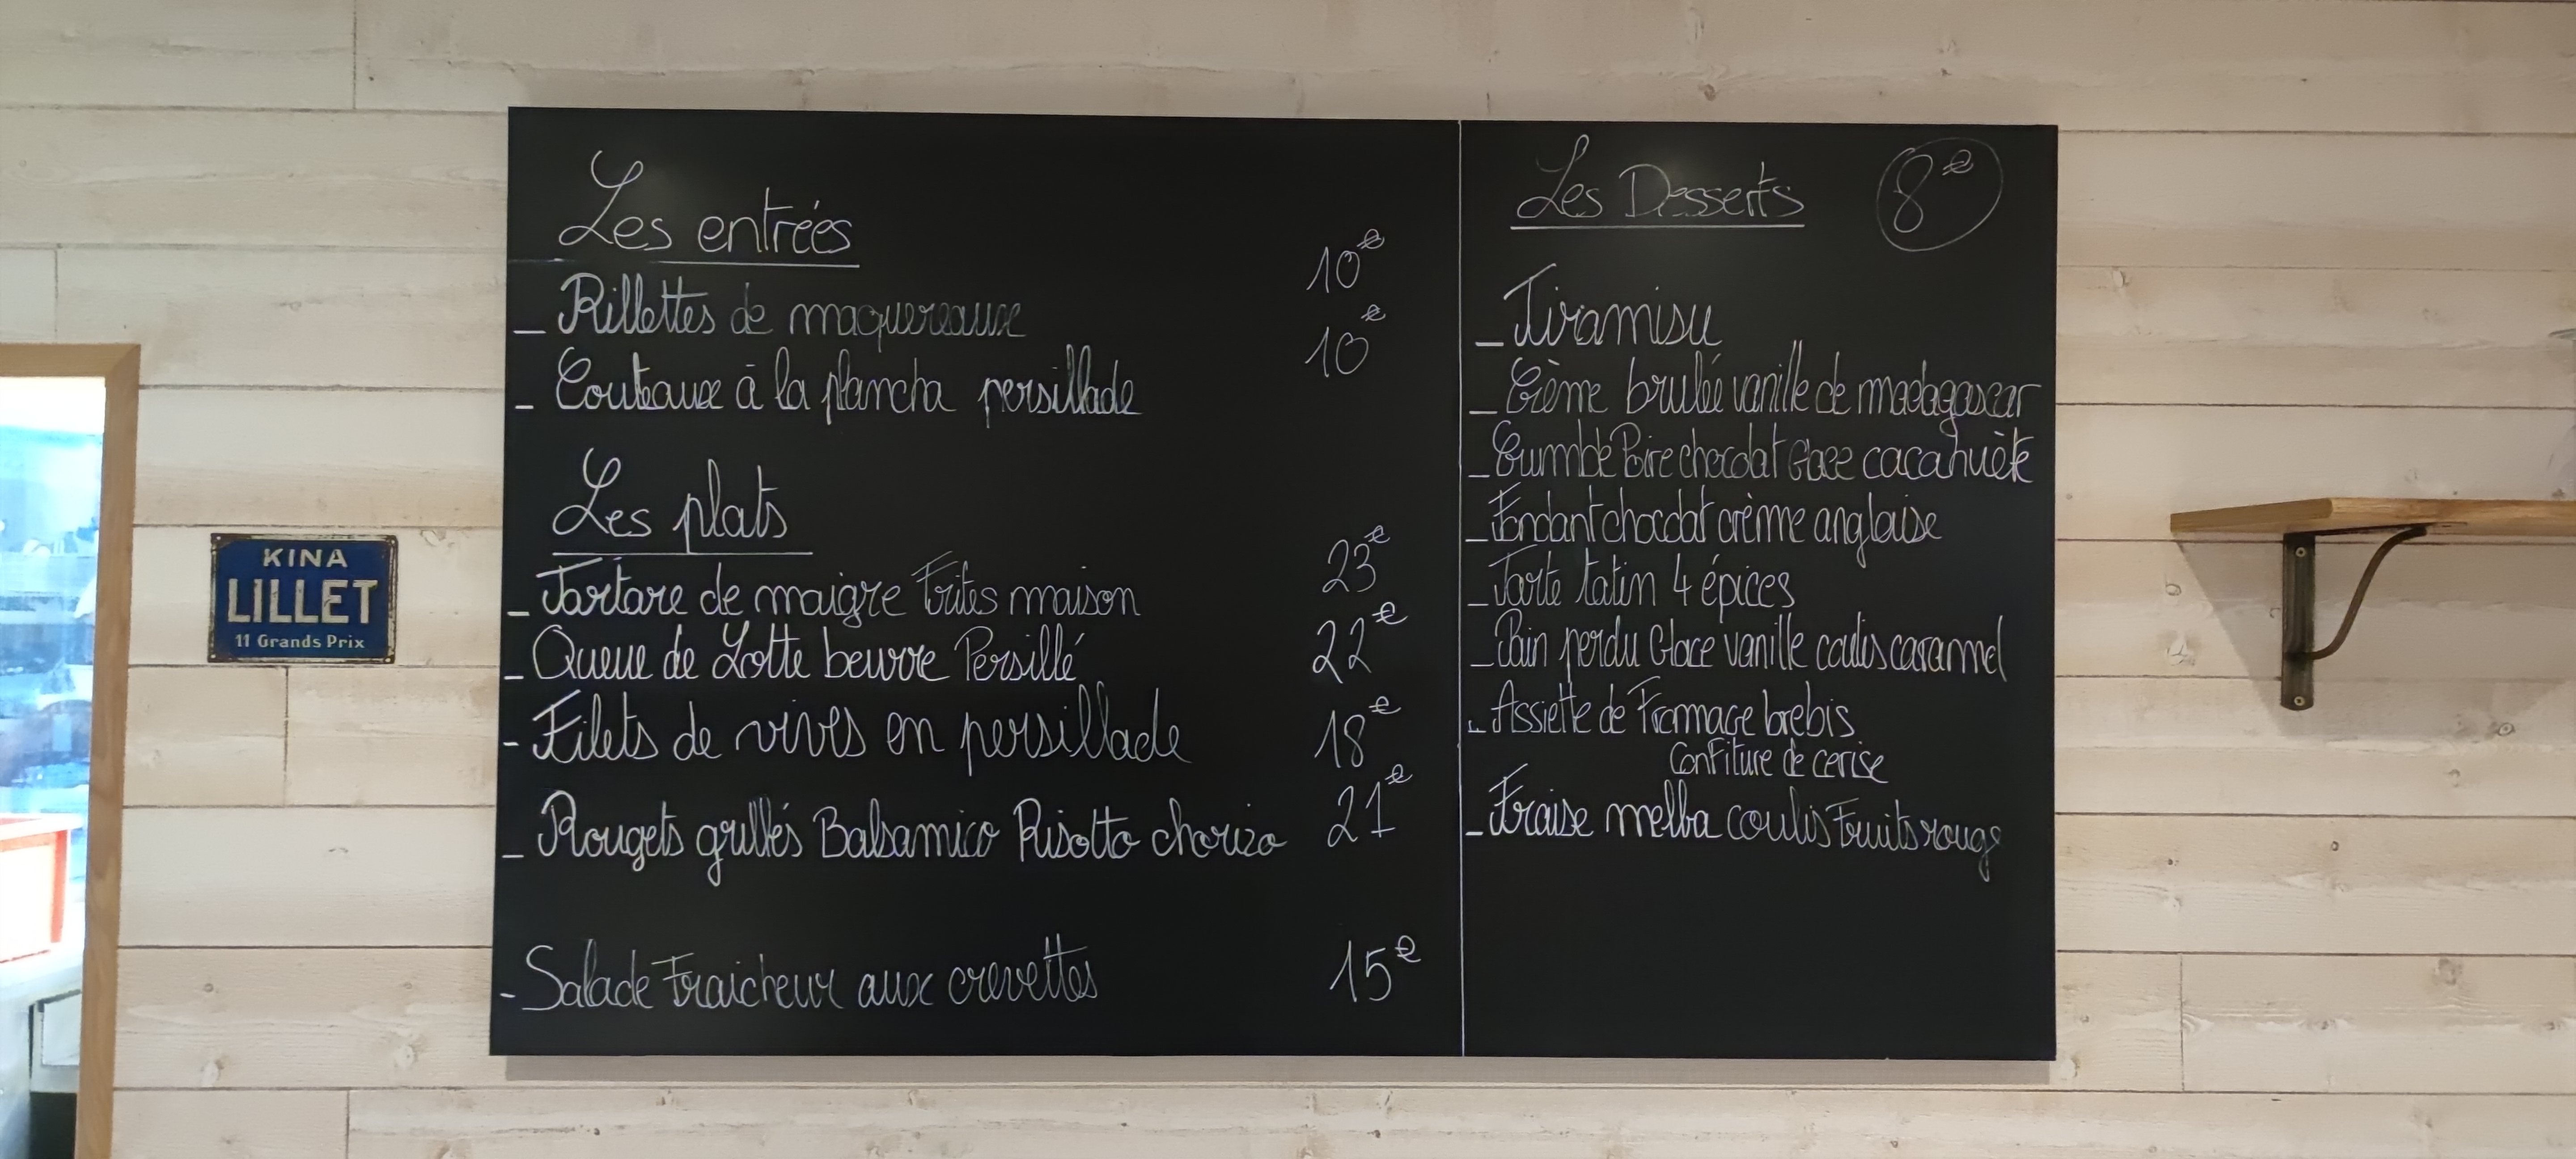 Les entrées
_ Rillettes de maquereaux 10€
_ Couteaux à la plancha persillade 10€
Les plats
_ Tartare de maigre Frites maison 23€
_ Queue de Lotte beurre Persillé 22€
- Filets de vives en persillade 18€
_ Rougets grillés Balsamico Risotto chorizo 21€
- Salade Fraicheur aux crevettes 15€
Les Desserts 8€
_ Tiramisu
_ Crème brulée vanille de madagascar
_ Crumble Poire chocolat Glace cacahuète
_ Fondant chocolat crème anglaise
_ Tarte tatin 4 épices
_ Pain perdu Glace vanille coulis caramel
- Assiette de Fromage brebis
Confiture de cerise
_ Fraise melba coulis Fruits rouge
KINA
LILLET
11 Grands Prix